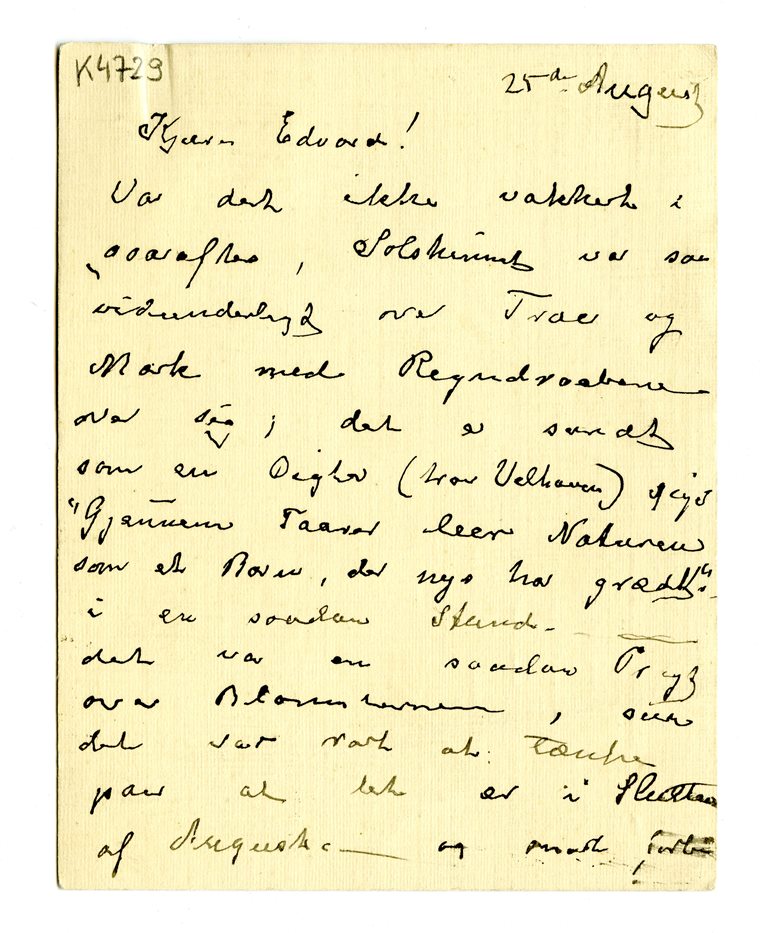 K4729
25de August
Kjære Edvard!
Var det ikke vakkert i
gaaraftes, Solskinnet var saa
vidunderligt over Træer og
Mark med Regndraabene
over sig; det er sandt
som en Digter (tror Velhaven) siger
"Gjennem Taarer leer Naturen
som et Barn, der nys har grædt"
i en saadan Stund.
det var en saadan
over Blomsterne,
det var rart at tænke
paa at det er i Slutten
af August. — og snart forbi